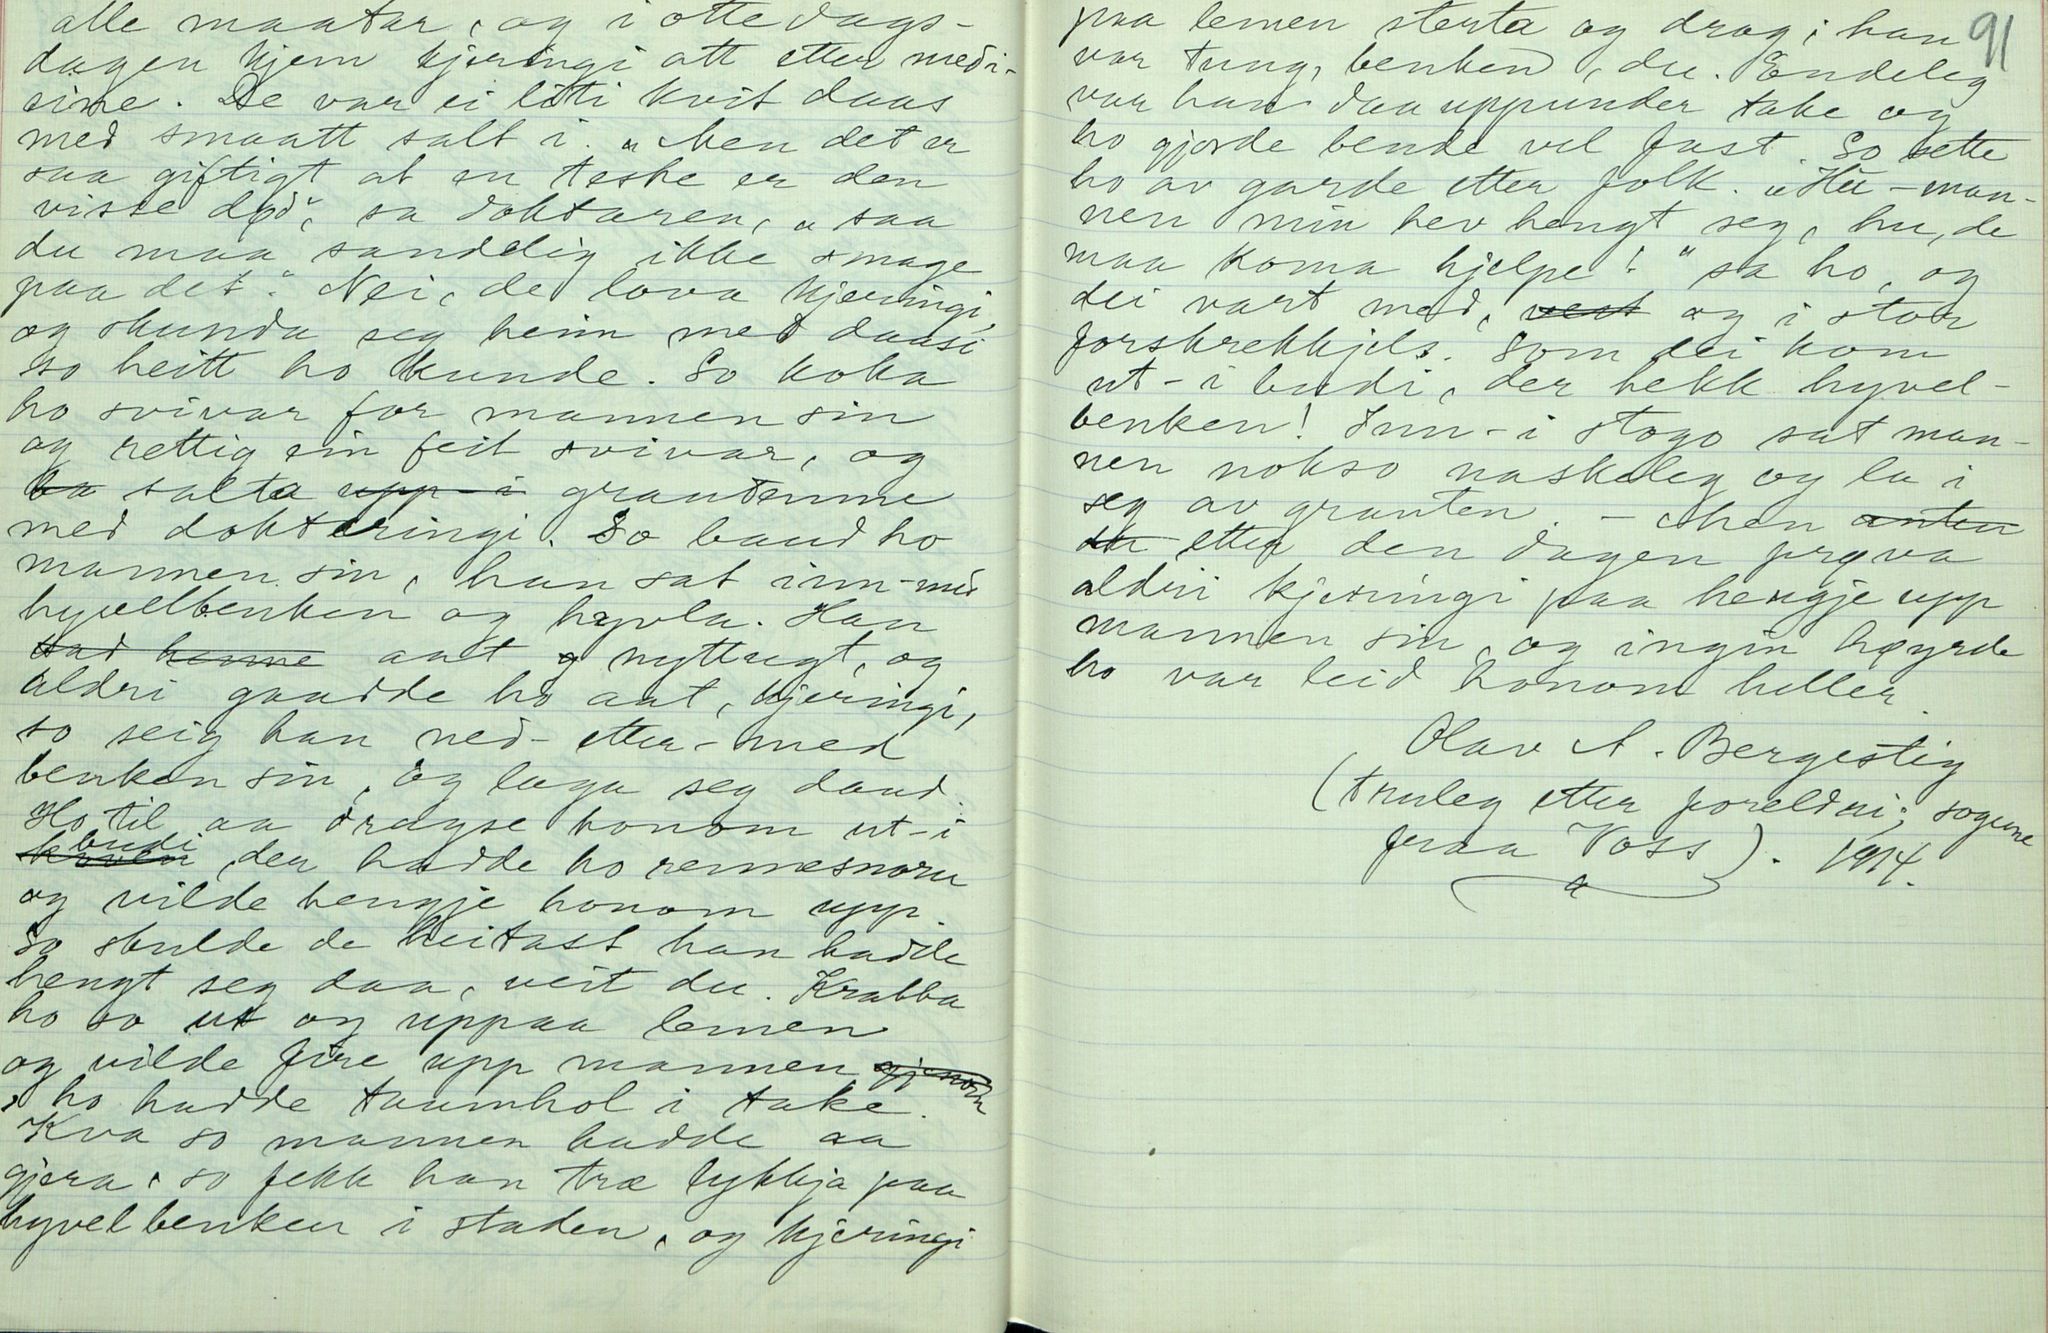 alle maatar, og i ottedags-
dagen kjem kjeringi att etter medi-
sine. De var ei liti kvit daas
med smaatt salt i. „Men det er
saa giftigt at en teske er den
visse død“, sa doktaren, „saa
du maa sanddelig ikke smage
paa det“. Nei, de lova kjeringi,
og skunda seg heim med daasi
so heitt ho kunde. So koka
ho svivar for mannen sin
og rettig ein feit svivar, og
ha salta upp-i grautenne
med dokteringi. So baud ho
mannen sin, han sat inn-med
hyvelbenken og hyvla. Han
bad henne aat og nyttugt, og
aldri gaadde ho aat, kjeringi,
so seig han ned-etter-med
benken sin, og laga seg daud.
Ho til aa dragse honom ut-i
budi
der hadde ho rennesnoru
og vilde hengje honom upp.
So skulde de heitast han hadde
hengt seg daa, veit du. Krabba
ho so ut og uppaa lemen
og vilde fire upp mannen
, ho hadde taumhol i take.
Kva so mannen hadde aa
gjera, so fekk han træ lykkja paa
hyvelbenken i staden, og kjeringi
91
paa lemen sterta og drog; han
var tung, benken, du. Endeleg
var han daa uppunder take og
ho gjorde bende vel fast. So sette
ho av garde etter folk. „Hu – man-
nen min hev hengt seg, hu, de
maa koma hjelpe!“ sa ho, og
dei vart med, vert og i stor
forskrekkjels. Som dei kom
ut-i budi, der hekk hyvel-
benken! Inn-i stogo sat man-
nen nokso naskeleg og la i
seg av grauten. – Men anten
du etter den dagen prøva
aldri kjeringi paa hengje upp
mannen sin, og ingin høyrde
ho var leid honom heller.
Olav A. Bergestig
(truleg etter foreldri; sogune
fraa Voss). 1914.